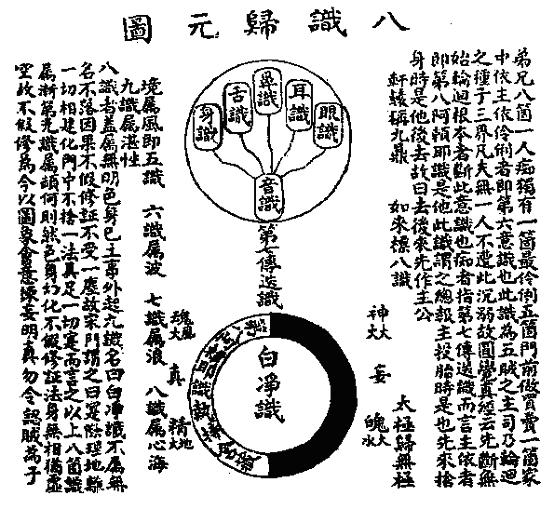 八識歸元圖
弟兄八箇一人痴獨有一箇最伶俐五箇門前做買賣一箇家
中依主依伶俐者即第六意識也此識為五賊之主司乃輪迴
之種子三界凡夫無一人不遭此沉溺故圓覺真經云先斷無
始輪迴根本者斷此意識也痴者指第七傳送識而言主依者
即第八阿頼耶識是他此識謂之總報主投胎時是也先來捨
身時是他後去故曰去後來先作主公
軒轅稱九鼎 如來標八識
眼識
耳識
鼻識
舌識
身識
音識
第七傳送識
白凈識
太極歸無極
神火
妄
魄水
魂風
真
精地
境属風即五識 六識属波 七識属浪 八識属心海
九識属湛性
八識者蓋属無明色身已上事外起九識名曰白凈識不属無
名不落因果不假修証不受一塵故宗門謂之曰實際理地離
一切相建化門中不捨一法具足一切而言之以上八箇識
属漸第九識属頓何則然色身幻化不假修証法身無相猶虚
空故不假修為今以圖象會意煉妄明真勿令認賊為子